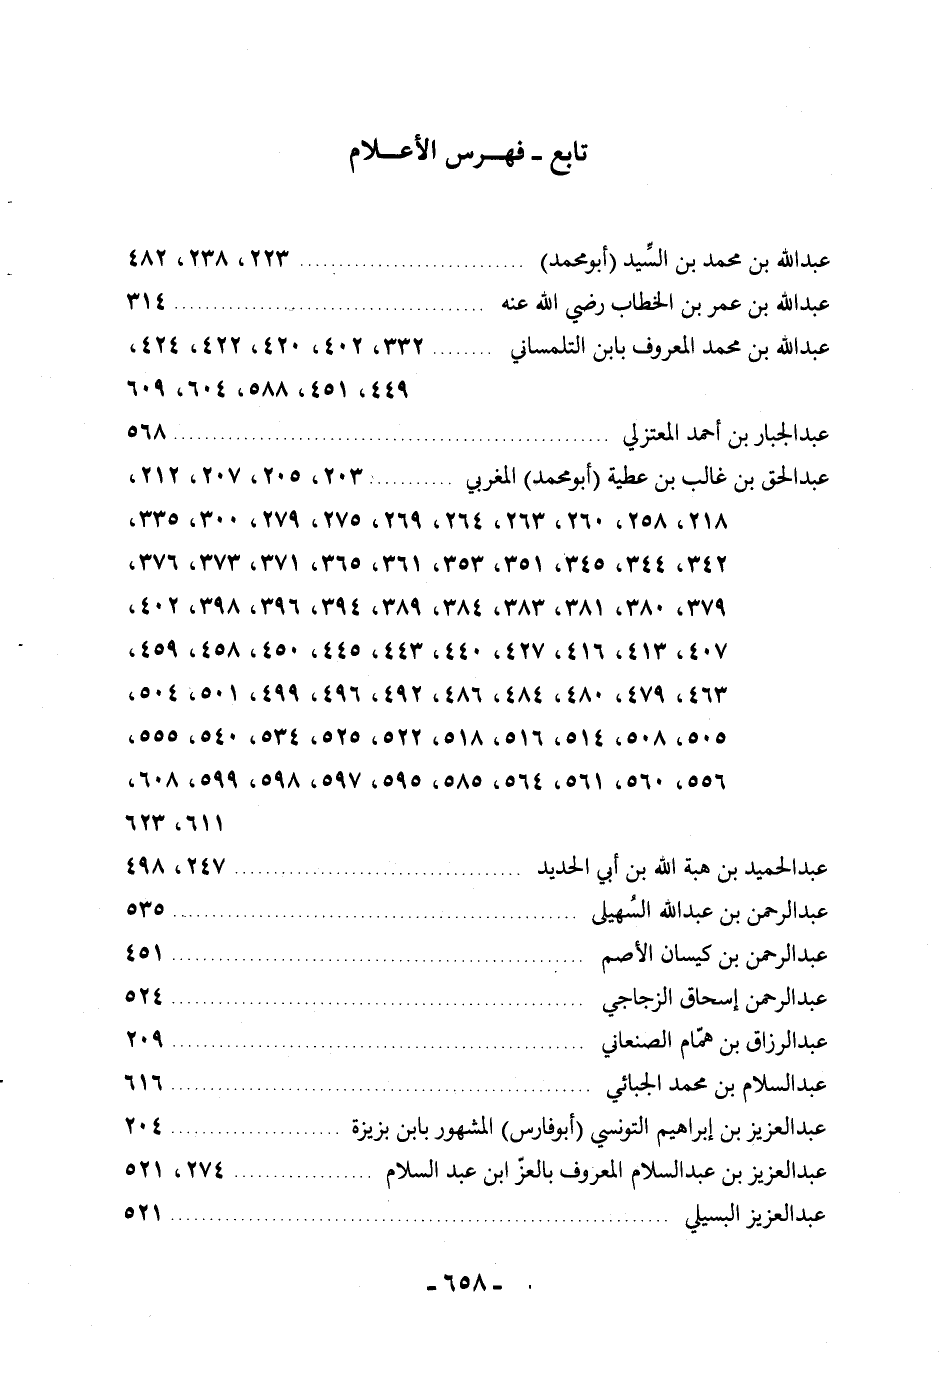 تابع - فهرس الأعلام
عبدالله بن محمد بن السِّيد (أبومحمد) .............................. ٢٢٣، ٢٣٨، ٤٨٢
عبدالله بن عمر بن الخطاب رضي الله عنه ........................................ ٣١٤
عبدالله بن محمد المعروف بابن التلمساني ........ ٣٣٢، ٤٠٢، ٤٢٠، ٤٢٢، ٤٢٤،
٤٤٩، ٤٥١، ٥٨٨، ٦٠٤، ٦٠٩
عبدالجبار بن أحمد المعتزلي ........................................................ ٥٦٨
عبدالحق بن غالب بن عطية (أبومحمد) المغربي ........... ٢٠٣، ٢٠٥، ٢٠٧، ٢١٢،
٢١٨، ٢٥٨، ٢٦٠، ٢٦٣، ٢٦٤، ٢٦٩، ٢٧٥، ٢٧٩، ٣٠٠، ٣٣٥،
٣٤٢، ٣٤٤، ٣٤٥، ٣٥١، ٣٥٣، ٣٦١، ٣٦٥، ٣٧١، ٣٧٣، ٣٧٦،
٣٧٩، ٣٨٠، ٣٨١، ٣٨٣، ٣٨٤، ٣٨٩، ٣٩٤، ٣٩٦، ٣٩٨، ٤٠٢،
٤٠٧، ٤١٣، ٤١٦، ٤٢٧، ٤٤٠، ٤٤٣، ٤٤٥، ٤٥٠، ٤٥٨، ٤٥٩،
٤٦٣، ٤٧٩، ٤٨٠، ٤٨٤، ٤٨٦، ٤٩٢، ٤٩٦، ٤٩٩، ٥٠١، ٥٠٤،
٥٠٥، ٥٠٨، ٥١٤، ٥١٦، ٥١٨، ٥٢٢، ٥٢٥، ٥٣٤، ٥٤٠، ٥٥٥،
٥٥٦، ٥٦٠، ٥٦١، ٥٦٤، ٥٨٥، ٥٩٥، ٥٩٧، ٥٩٨، ٥٩٩، ٦٠٨،
٦١١، ٦٢٣
عبدالحميد بن هبة الله بن أبي الحديد ..................................... ٢٤٧، ٤٩٨
عبدالرحمن بن عبدالله السُهيلى .................................................... ٥٣٥
عبدالرحمن بن كيسان الأصم ..................................................... ٤٥١
عبدالرحمن إسحاق الزجاجي ..................................................... ٥٢٤
عبدالرزاق بن همّام الصنعاني ..................................................... ٢٠٩
عبدالسلام بن محمد الجبائي ...................................................... ٦١٦
عبدالعزيز بن إبراهيم التونسي (أبوفارس) المشهور بابن بزيزة ...................... ٢٠٤
عبدالعزيز بن عبدالسلام المعروف بالعزّ ابن عبد السلام .................. ٢٧٤، ٥٢١
عبدالعزيز البسيلي ................................................................ ٥٢١
- ٦٥٨ -